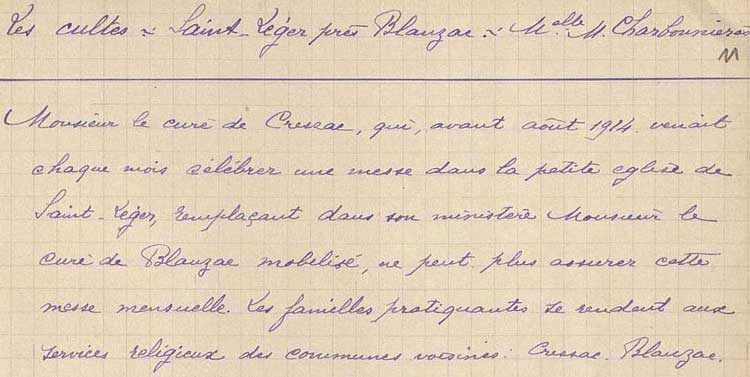 Les cultes ~ Saint-Léger près Blanzac ~ Melle M. Charbonnier
Monsieur le curé de Cressac, qui, avant août 1914 venait
chaque mois célébrer une messe dans la petite église de
Saint-Léger, remplaçant dans son ministère Monsieur le
curé de Blanzac mobilisé, ne peut plus assurer cette
messe mensuelle. Les familles pratiquantes se rendent aux
services religieux des communes voisines: Cressac. Blanzac.